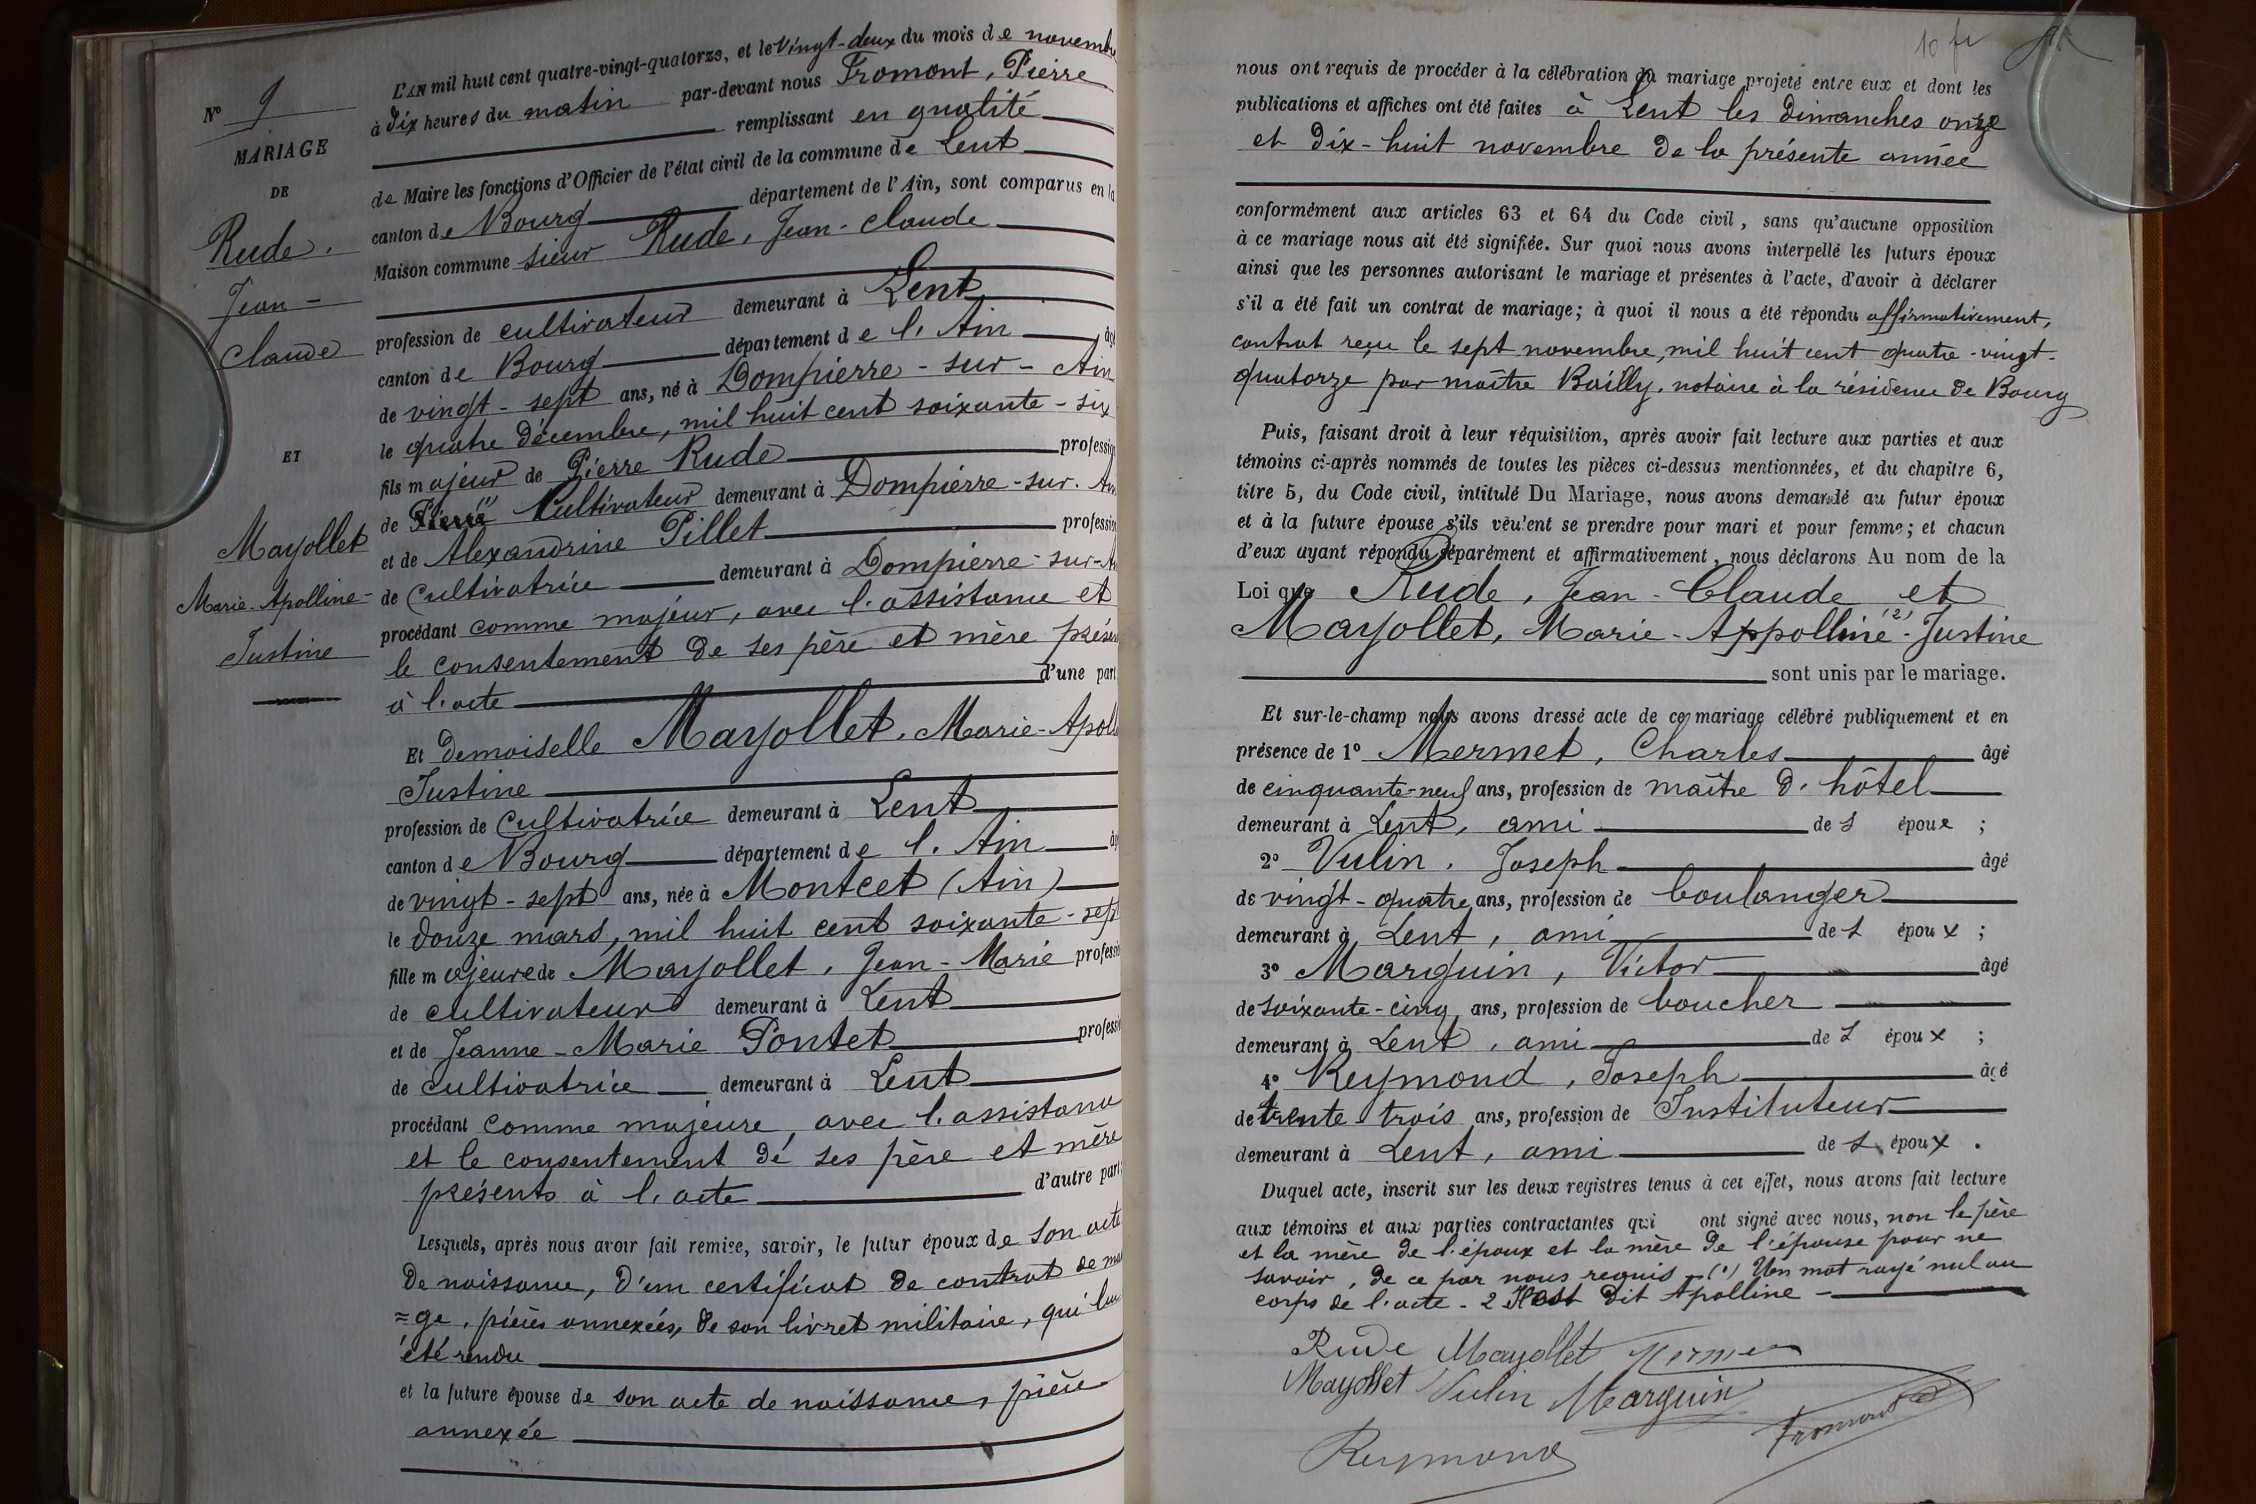 N° 9
MARIAGE
DE
Rude.
Jean-
Claude
ET
Mayollet
Marie-Apolline-
Justine
L'AN mil huit cent quatre-vingt-quatorze, et le vingt-deux du mois de novembre
à dix heures du matin par-devant nous Fromont, Pierre
remplissant en qualité
de Maire les fonctions d'Officier de l'état civil de la commune de Lent
canton de Bourg département de l'Ain, sont comparus en la
Maison commune sieur Rude, Jean-Claude
profession de cultivateur demeurant à Lent
canton de Bourg département de l'Ain âgé
de vingt-sept ans, né à Dompierre-sur-Ain
le quatre décembre, mil huit cent soixante-six
fils majeur de Pierre Rude profession
de Pierre (1) Cultivateur demeurant à Dompierre-sur-Ain
et de Alexandrine Pillet profession
de Cultivatrice demeurant à Dompierre-sur-A
procédant comme majeur, avec l'assistance et
le consentement de ses père et mère présen
à l'acte d'une part
Et demoiselle Mayollet, Marie-Apoll
Justine
profession de Cultivatrice demeurant à Lent
canton de Bourg département de l'Ain âg
de vingt-sept ans, née à Montcet (Ain)
le douze mars, mil huit cent soixante-sept
fille majeure de Mayollet, Jean-Marie profession
de cultivateur demeurant à Lent
et de Jeanne-Marie Pontet profession
de cultivatrice demeurant à Lent
procédant comme majeure, avec l'assistance
et le consentement de ses père et mère
présents à l'acte d'autre part:
Lesquels, après nous avoir fait remise, savoir, le futur époux de son acte
de naissance, d'un certificat de contrat de ma
=ge, pièces annexées, de son livret militaire, qui lui
été rendu
et la future épouse de son acte de naissance, pièce
annexée
10 fr
nous ont requis de procéder à la célébration du mariage projeté entre eux et dont les
publications et affiches ont été faites à Lent les dimanches onze
et dix-huit novembre de la présente année
conformément aux articles 63 et 64 du Code civil, sans qu'aucune opposition
à ce mariage nous ait été signifiée. Sur quoi nous avons interpellé les futurs époux
ainsi que les personnes autorisant le mariage et présentes à l'acte, d'avoir à déclarer
s'il a été fait un contrat de mariage; à quoi il nous a été répondu affirmativement,
contrat reçu le sept novembre, mil huit cent quatre-vingt-
quatorze par maître Bailly, notaire à la résidence de Bourg
Puis, faisant droit à leur réquisition, après avoir fait lecture aux parties et aux
témoins ci-après nommés de toutes les pièces ci-dessus mentionnées, et du chapitre 6,
titre 5, du Code civil, intitulé Du Mariage, nous avons demandé au futur époux
et à la future épouse s'ils veulent se prendre pour mari et pour femme; et chacun
d'eux ayant répondu séparément et affirmativement, nous déclarons Au nom de la
Loi que Rude, Jean-Claude et
Mayollet, Marie-Appolline (2)-Justine
sont unis par le mariage.
Et sur-le-champ nous avons dressé acte de ce mariage célébré publiquement et en
présence de 1° Mermet, Charles âgé
de cinquante-neuf ans, profession de maître d'hôtel
demeurant à Lent, ami de l'épouse;
2° Vulin, Joseph âgé
de vingt-quatre ans, profession de boulanger
demeurant à Lent, ami de l'époux;
3° Marguin, Victor âgé
de soixante-cinq ans, profession de boucher
demeurant à Lent, ami de l'époux;
4° Reymond, Joseph âgé
de trente trois ans, profession de Instituteur
demeurant à Lent, ami de l'époux.
Duquel acte, inscrit sur les deux registres tenus à cet effet, nous avons fait lecture
aux témoins et aux parties contractantes qui ont signé avec nous, non le père
et la mère de l'époux et la mère de l'épouse pour ne
savoir, de ce par nous requis - (1) Un mot rayé nul au
corps de l'acte - 2 dit Apolline -
Rude Mayollet Mermet
Mayollet Vulin Marguin
Reymond Fromont